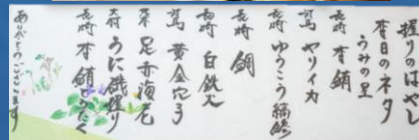 握りのはやし
本日のネタ
うみの里
長崎 本鮪
ヤリイカ
長崎 ゆうこう縞鯵
長崎 鯛
長崎 白鉄火
黄金穴子
足赤海老
大村 うに磯握り
長崎 本鮪とろたく
ありがとうございます